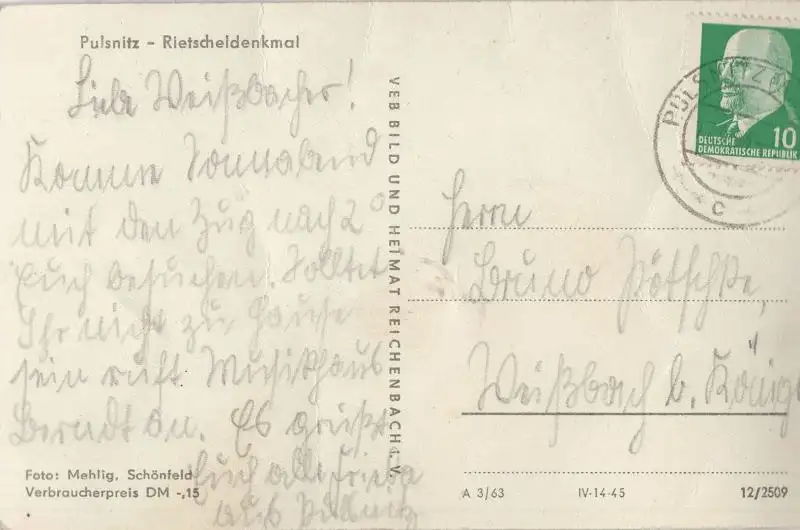 Pulsnitz - Rietscheldenkmal
Liebe Weißbacher!
Komme Sonnabend
mit den Zug nach 2°
Euch besuchen. Solltet
Ihr nicht zu Hause
sein ruft Musikhaus
Berndt an. Es grüßt
Euch alle
aus Pulsnitz
Foto: Mehlig, Schönfeld
Verbraucherpreis DM -,15
VEB BILD UND HEIMAT REICHENBACH i. V.
PULSNITZ
c
10
DEUTSCHE
DEMOKRATISCHE REPUBLIK
Herrn
Bruno Pötschke,
Weißbach b. König
A 3/63 IV-14-45 12/2509